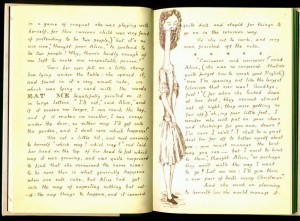 in a game of croquet she was playing with
herself, for this curious child was very fond
of pretending to be two people," but it's no
use now," thought poor Alice, "to pretend to
be two people! Why, there's hardly enough of
me left to make one respectable person!"
Soon her eyes fell on a little ebony box
lying under the table: she opened it, and
found in it a very small cake, on
which was lying a card with the words
EAT ME beautifully printed on it
in large letters. "I'll eat," said Alice, "and
if it makes me larger, I can reach the key,
and if it makes me smaller, I can creep
under the door, so either way I'll get into
the garden, and I don't care which happens!"
She eat a little bit, and said anxiously
to herself "which way? which way?" and laid
her hand on the top of her head to feel which
way it was growing, and was quite surprised
to find that she remained the same size:
to be sure this is what generally happens
when one eats cake, but Alice had got
into the way of expecting nothing but out-
of-the way things to happen, and it seemed
quite dull and stupid for things to
go on in the common way.
So she set to work, and very
soon finished off the cake.
* * * * *
"Curiouser and curiouser!" cried
Alice, (she was so surprised that she
quite forgot how to speak good English,)
"now I'm opening out like the largest
telescope that ever was! Goodbye,
feet!" (for when she looked down
at her feet, they seemed almost
out of sight, they were getting so
far off,) "oh, my poor little feet, I
wonder who will put on your shoes
and stockings for you now, dears?
I'm sure I can't! I shall be a great
deal too far off to bother myself about
you: you must manage the best
way you can — but I must be kind
to them", thought Alice, "or perhaps
they won't walk the way I want
to go! Let me see: I'll give them
a new pair of boots every Christmas."
And she went on planning
to herself how she would manage it: